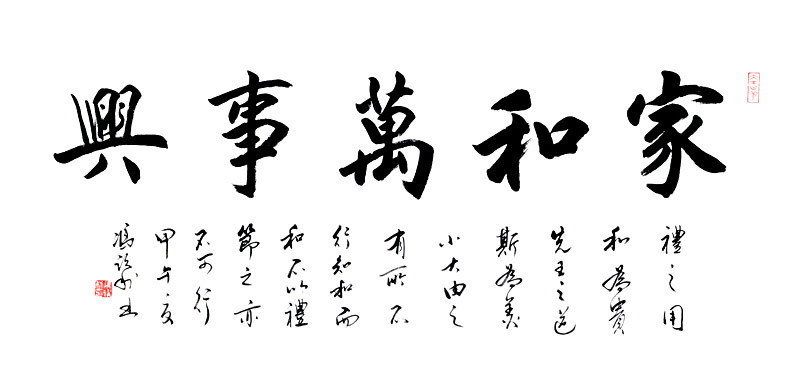 家和萬事興
禮之用
和為貴
先王之道
斯為美
小大由之
有所不
行知和而
和不以禮
節之亦
不可行
甲午夏
馮